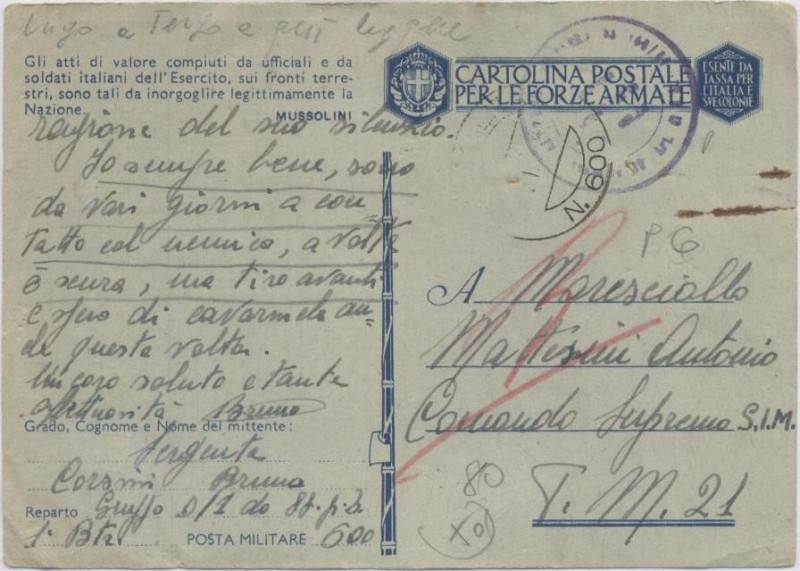 Ugo a Terzo a
Gli atti di valore compiuti da ufficiali e da
soldati italiani dell'Esercito, sui fronti terre-
stri, sono tali da inorgoglire legittimamente la
Nazione.
MUSSOLINI
CARTOLINA POSTALE
PER LE FORZE ARMATE
ESENTE DA
TASSA PER
L'ITALIA E
SUE COLONIE
N. 600
ragione del suo silenzio.
Io sempre bene, sono
da vari giorni a con
tatto col nemico, a volte
è scura, ma tiro avanti
e spero di cavarmela an-
che questa volta.
Un caro saluto e tante
affettuosità Bruno
Grado, Cognome e Nome del mittente:
Sergente
Corsini Bruno
Reparto Gruppo da 88
1ª Btr. POSTA MILITARE 600
P6
A Maresciallo
Mattesini Antonio
Comando Supremo S.I.M.
P.M. 21
80